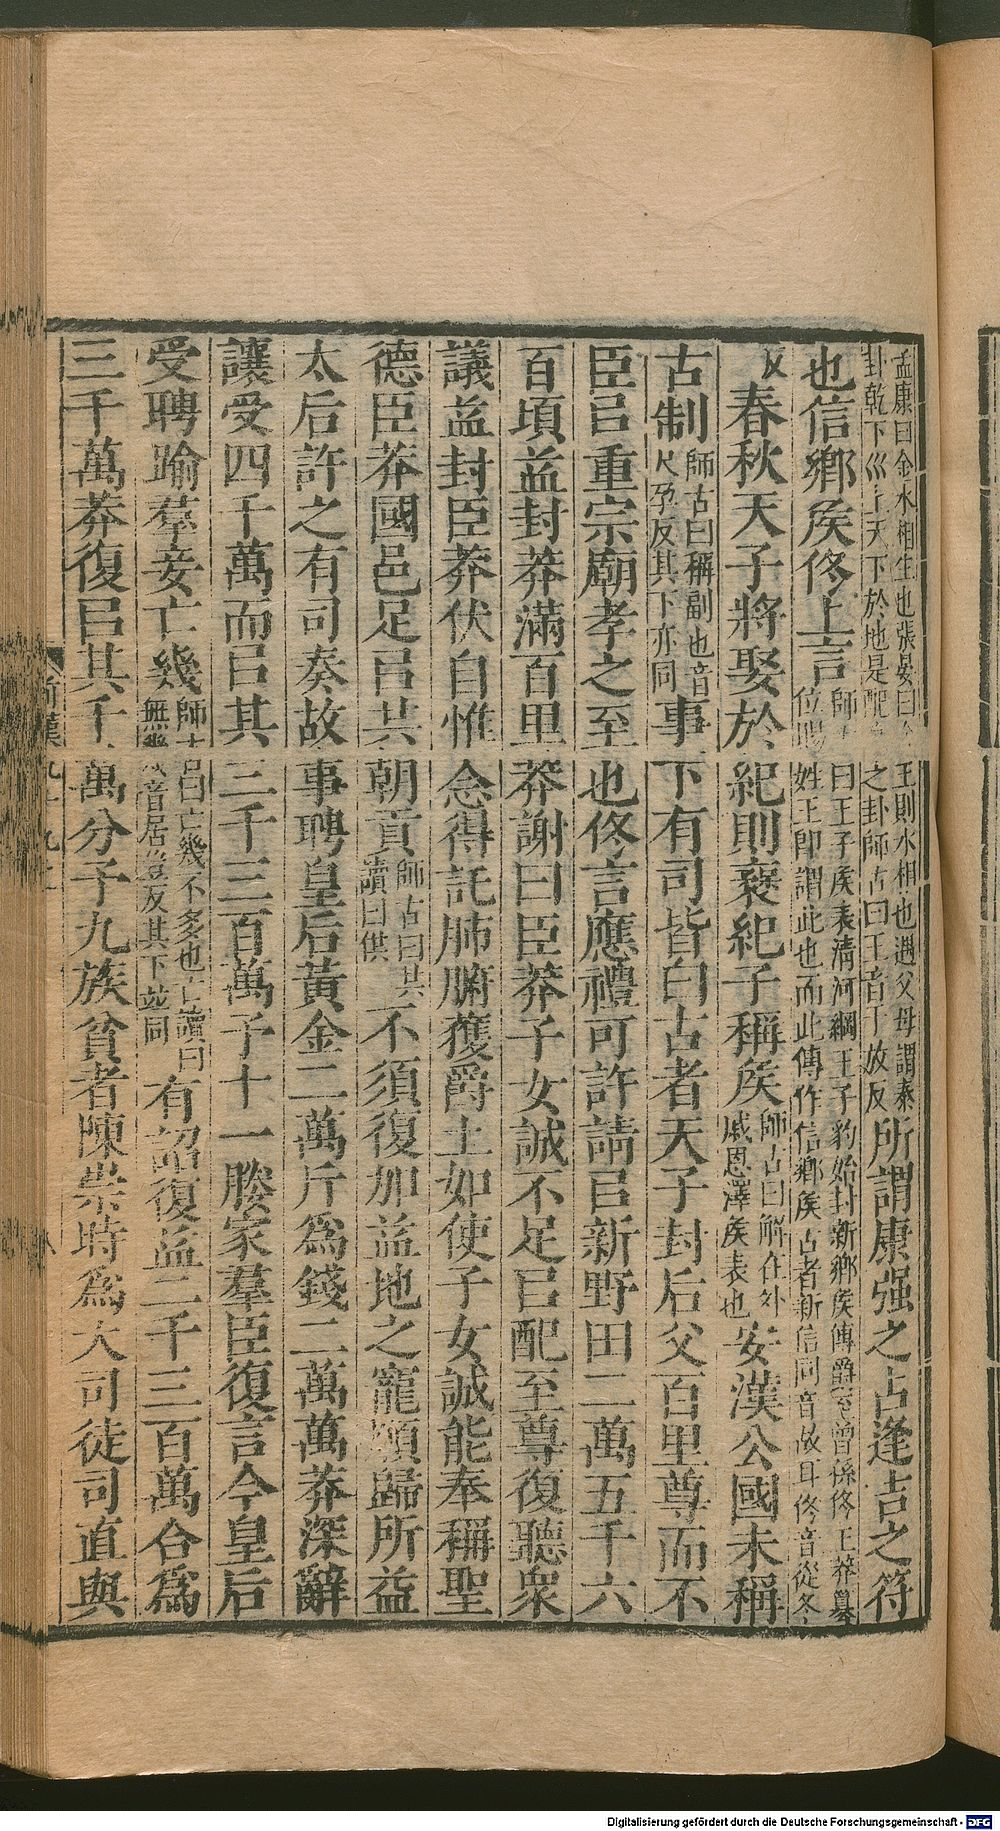 孟康曰金水相生也張晏曰金王則水相也遇父母謂泰
卦乾下巛上天下於地是配之卦師古曰王音于放反
所謂康强之占逢吉之符
也信鄉矦佟上言
師古曰王子矦表清河綱王子豹始封新鄉矦傳爵至曾孫佟王莽篡
位賜姓王即謂此也而此傳作信鄉矦古者新信同音故耳佟音從冬
反
春秋天子將娶於紀則襃紀子稱矦
師古曰解在外
戚恩澤矦表也
安漢公國未稱
古制
師古曰稱副也音
尺孕反其下亦同
事下有司皆曰古者天子封后父百里尊而不
臣㠯重宗廟孝之至也佟言應禮可許請㠯新野田二萬五千六
百頃益封莽滿百里莽謝曰臣莽子女誠不足㠯配至尊復聽衆
議益封臣莽伏自惟念得託肺腑獲爵土如使子女誠能奉稱聖
德臣莽國邑足㠯共朝貢
師古曰共
讀曰供
不須復加益地之寵願歸所益
太后許之有司奏故事聘皇后黃金二萬斤爲錢二萬萬莽深辭
讓受四千萬而㠯其三千三百萬予十一媵家羣臣復言今皇后
受聘踰羣妾亡幾
師古曰亡幾不多也亡讀曰
無幾音居豈反其下並同
有詔復益二千三百萬合爲
三千萬莽復㠯其千萬分予九族貧者陳崇時爲大司徒司直與
Digitalisierung gefördert durch die Deutsche Forschungsgemeinschaft - DFG